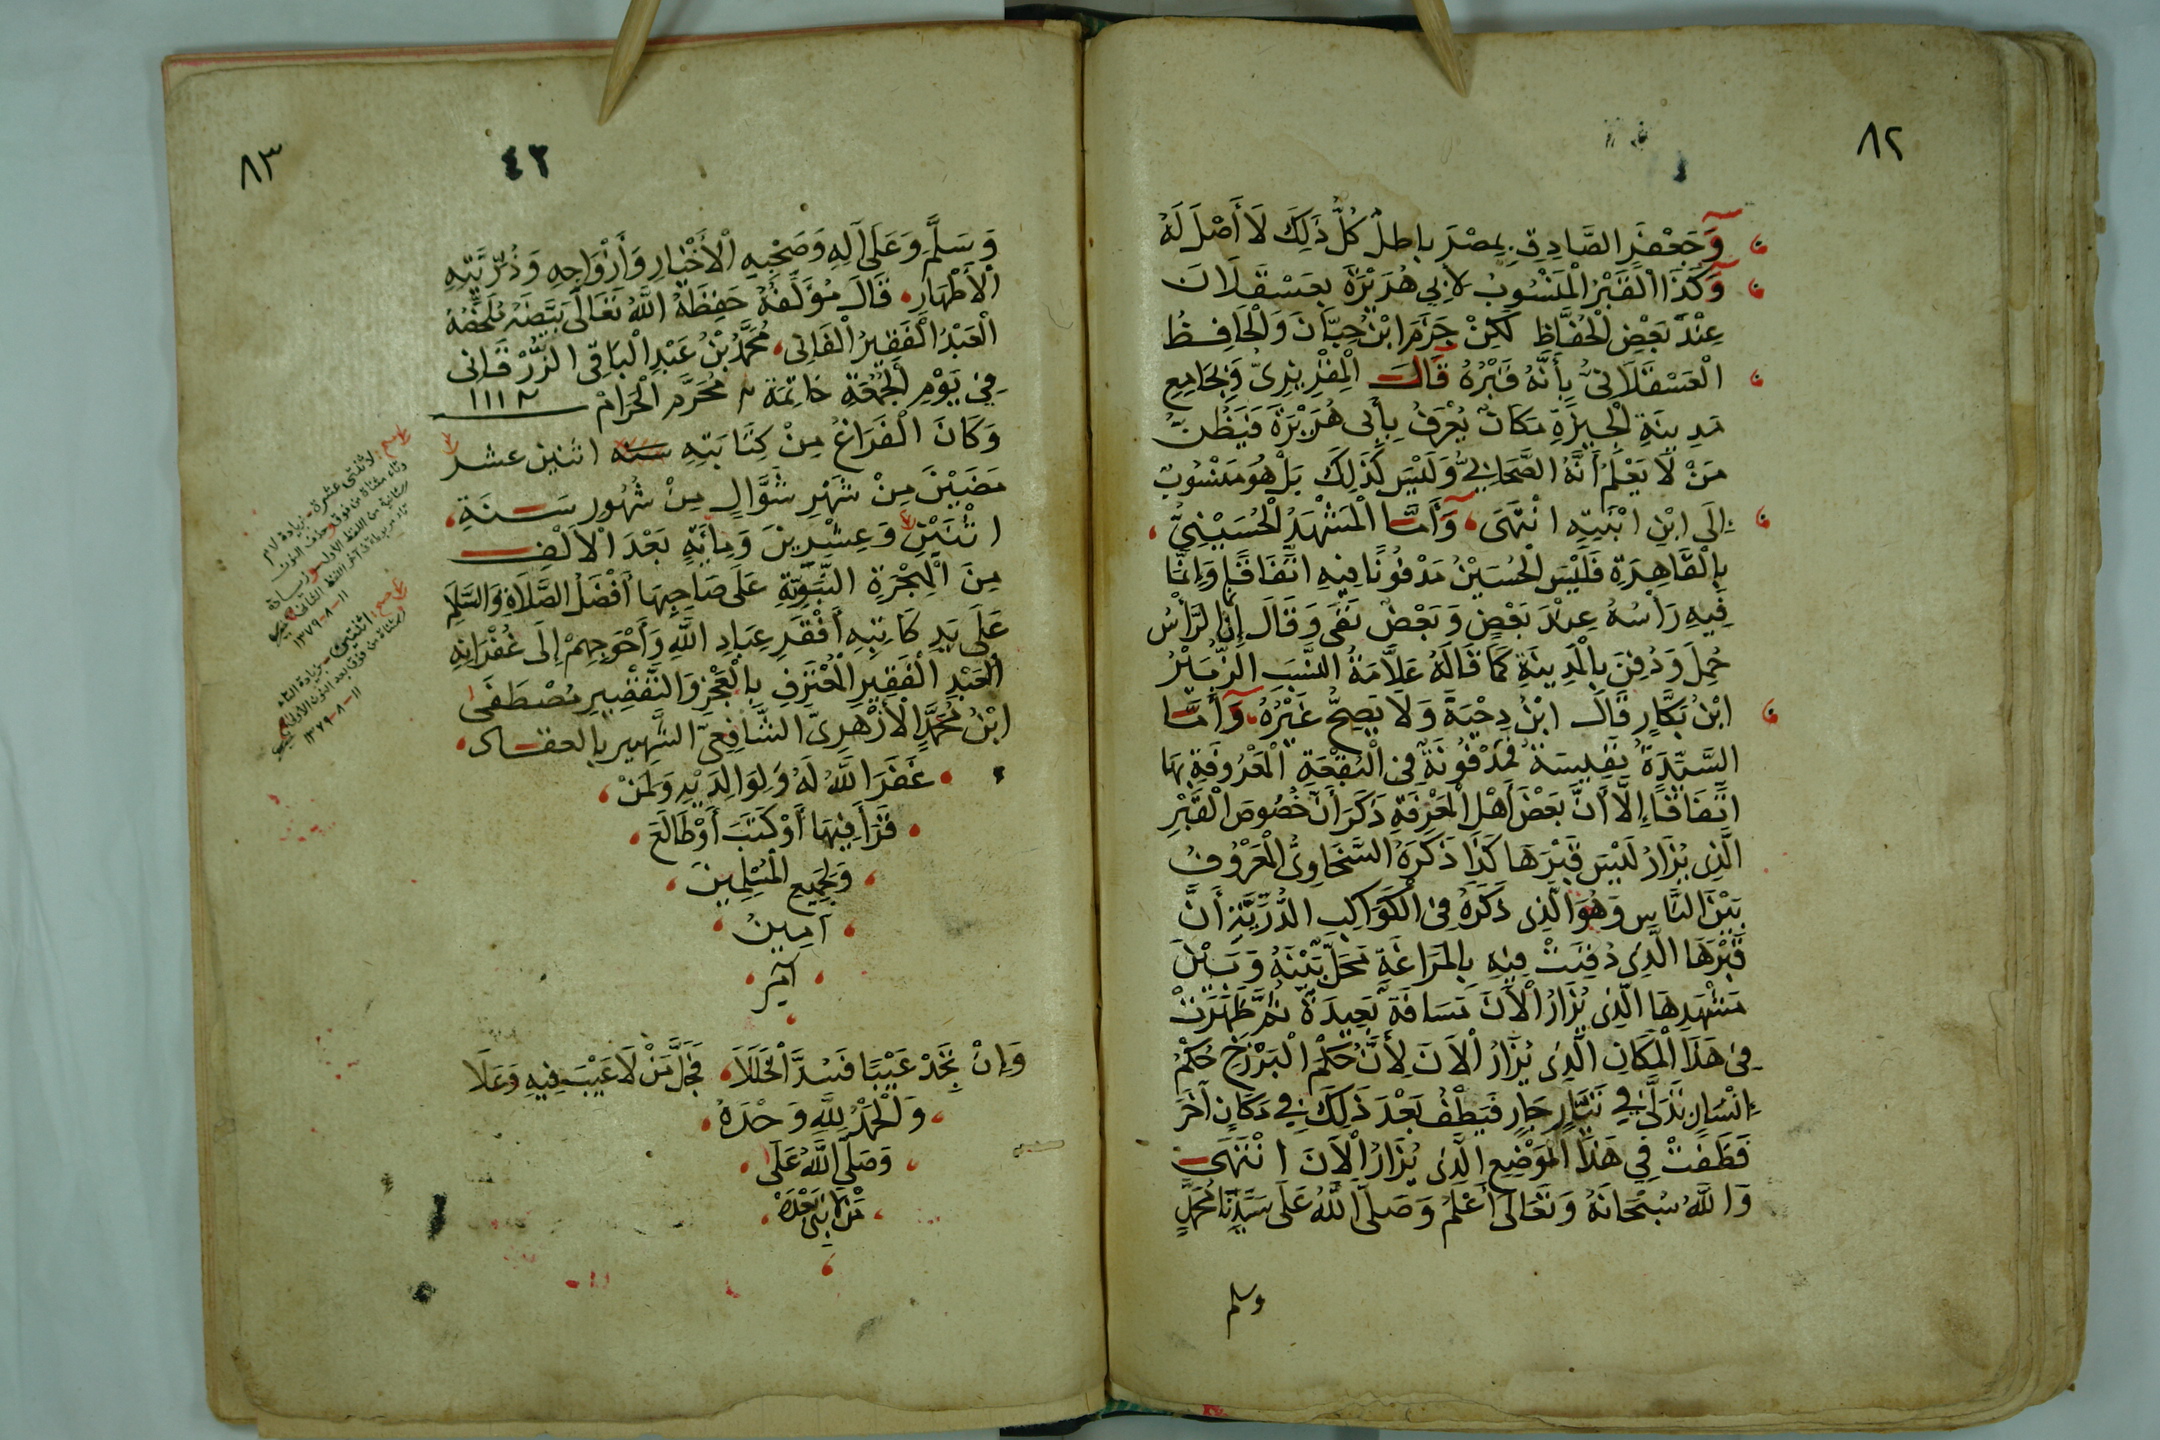 ٨٢
وَجَعْفَرِ الصَّادِقِ بِمِصْرَ بَاطِلٌ كُلُّ ذَلِكَ لَا أَصْلَ لَهُ
وَكَذَا الْقَبْرُ الْمَنْسُوبُ لِأَبِي هُرَيْرَةَ بِعَسْقَلَانَ
عِنْدَ بَعْضِ الْحُفَّاظِ لَكِنْ جَزَمَ ابْنُ حِبَّانَ وَالْحَافِظُ
الْعَسْقَلَانِيُّ بِأَنَّهُ قَبْرُهُ قَالَ الْمَقْرِيزِيُّ وَبِجَامِعِ
مَدِينَةِ الْجِيزَةِ مَكَانٌ يُعْرَفُ بِأَبِي هُرَيْرَةَ فَيَظُنُّ
مَنْ لَا يَعْلَمُ أَنَّهُ الصَّحَابِيُّ وَلَيْسَ كَذَلِكَ بَلْ هُوَ مَنْسُوبٌ
إِلَى ابْنِ ابْنَتِهِ انْتَهَى وَأَمَّا الْمَشْهَدُ الْحُسَيْنِيُّ
بِالْقَاهِرَةِ فَلَيْسَ الْحُسَيْنُ مَدْفُونًا فِيهِ اتِّفَاقًا وَإِنَّمَا
فِيهِ رَأْسُهُ عِنْدَ بَعْضٍ وَبَعْضٌ نَفَى وَقَالَ إِنَّ الرَّأْسَ
حُمِلَ وَدُفِنَ بِالْمَدِينَةِ كَمَا قَالَهُ عَلَّامَةُ النَّسَبِ الزُّبَيْرُ
ابْنُ بَكَّارٍ قَالَ ابْنُ دِحْيَةَ وَلَا يَصِحُّ غَيْرُهُ وَأَمَّا
السَّيِّدَةُ نَفِيسَةُ فَمَدْفُونَةٌ فِي الْبُقْعَةِ الْمَعْرُوفَةِ بِهَا
اتِّفَاقًا إِلَّا أَنَّ بَعْضَ أَهْلِ الْمَعْرِفَةِ ذَكَرَ أَنَّ خُصُوصَ الْقَبْرِ
الَّذِي يُزَارُ لَيْسَ قَبْرَهَا كَذَا ذَكَرَهُ السَّخَاوِيُّ الْمَعْرُوفُ
بَيْنَ النَّاسِ وَهُوَ الَّذِي ذَكَرَهُ فِي الْكَوَاكِبِ الدُّرِّيَّةِ أَنَّ
قَبْرَهَا الَّذِي دُفِنَتْ فِيهِ بِالْمَرَاغَةِ مَحَلٌّ بَيْنَهُ وَبَيْنَ
مَشْهَدِهَا الَّذِي يُزَارُ الْآنَ مَسَافَةٌ بَعِيدَةٌ ثُمَّ ظَهَرَتْ
فِي هَذَا الْمَكَانِ الَّذِي يُزَارُ الْآنَ لِأَنَّ حُكْمَ الْبَرْزَخِ حُكْمُ
إِنْسَانٍ تَدَلَّى فِي تَيَّارٍ جَارٍ فَيَطْفُ بَعْدَ ذَلِكَ فِي مَكَانٍ آخَرَ
فَطَفَتْ فِي هَذَا الْمَوْضِعِ الَّذِي يُزَارُ الْآنَ انْتَهَى
وَاللَّهُ سُبْحَانَهُ وَتَعَالَى أَعْلَمُ وَصَلَّى اللَّهُ عَلَى سَيِّدِنَا مُحَمَّدٍ
وسلم
٨٣
٤٢
وَسَلَّمَ وَعَلَى آلِهِ وَصَحْبِهِ الْأَخْيَارِ وَأَزْوَاجِهِ وَذُرِّيَّتِهِ
الْأَطْهَارِ قَالَ مُؤَلِّفُهُ حَفِظَهُ اللَّهُ تَعَالَى بَيَّضَهُ مُلَخِّصُهُ
الْعَبْدُ الْفَقِيرُ الْفَانِي مُحَمَّدُ بْنُ عَبْدِ الْبَاقِي الزُّرْقَانِي
فِي يَوْمِ الْجُمُعَةِ خَاتِمَةَ مُحَرَّمِ الْحَرَامْ ١١١٢
وَكَانَ الْفَرَاغُ مِنْ كِتَابَتِهِ سنه اثنين عشر
مَضَيْنَ مِنْ شَهْرِ شَوَّالٍ مِنْ شُهُورِ سَنَةِ
اثْنَيْنِ وَعِشْرِينَ وَمِائَةٍ بَعْدَ الْأَلْفِ
مِنَ الْهِجْرَةِ النَّبَوِيَّةِ عَلَى صَاحِبِهَا أَفْضَلُ الصَّلَاةِ وَالسَّلَامِ
عَلَى يَدِ كَاتِبِهِ أَفْقَرِ عِبَادِ اللَّهِ وَأَحْوَجِهِمْ إِلَى غُفْرَانِهِ
الْعَبْدِ الْفَقِيرِ الْمُعْتَرِفِ بِالْعَجْزِ وَالتَّقْصِيرِ مُصْطَفَى
ابْنُ مُحَمَّدٍ الْأَزْهَرِيِّ الشَّافِعِيِّ الشَّهِيرِ بالعقاد
غَفَرَ اللَّهُ لَهُ وَلِوَالِدَيْهِ وَلِمَنْ
قَرَأَ فِيهَا أَوْ كَتَبَ أَوْ طَالَعَ
وَلِجَمِيعِ الْمُسْلِمِينَ
آمِينَ
آمين
وَإِنْ تَجِدْ عَيْبًا فَسُدَّ الْخَلَلَا فَجَلَّ مَنْ لَا عَيْبَ فِيهِ وَعَلَا
وَالْحَمْدُ لِلَّهِ وَحْدَهُ
وَصَلَّى اللَّهُ عَلَى
مَنْ لَا نَبِيَّ بَعْدَهُ
لاثنتي عشرة بزيادة لام
وتاء مثناة من فوق وحذف النون
١١-٨-١٣٧٩
اثنتين بزيادة التاء
١١-٨-١٣٧٩